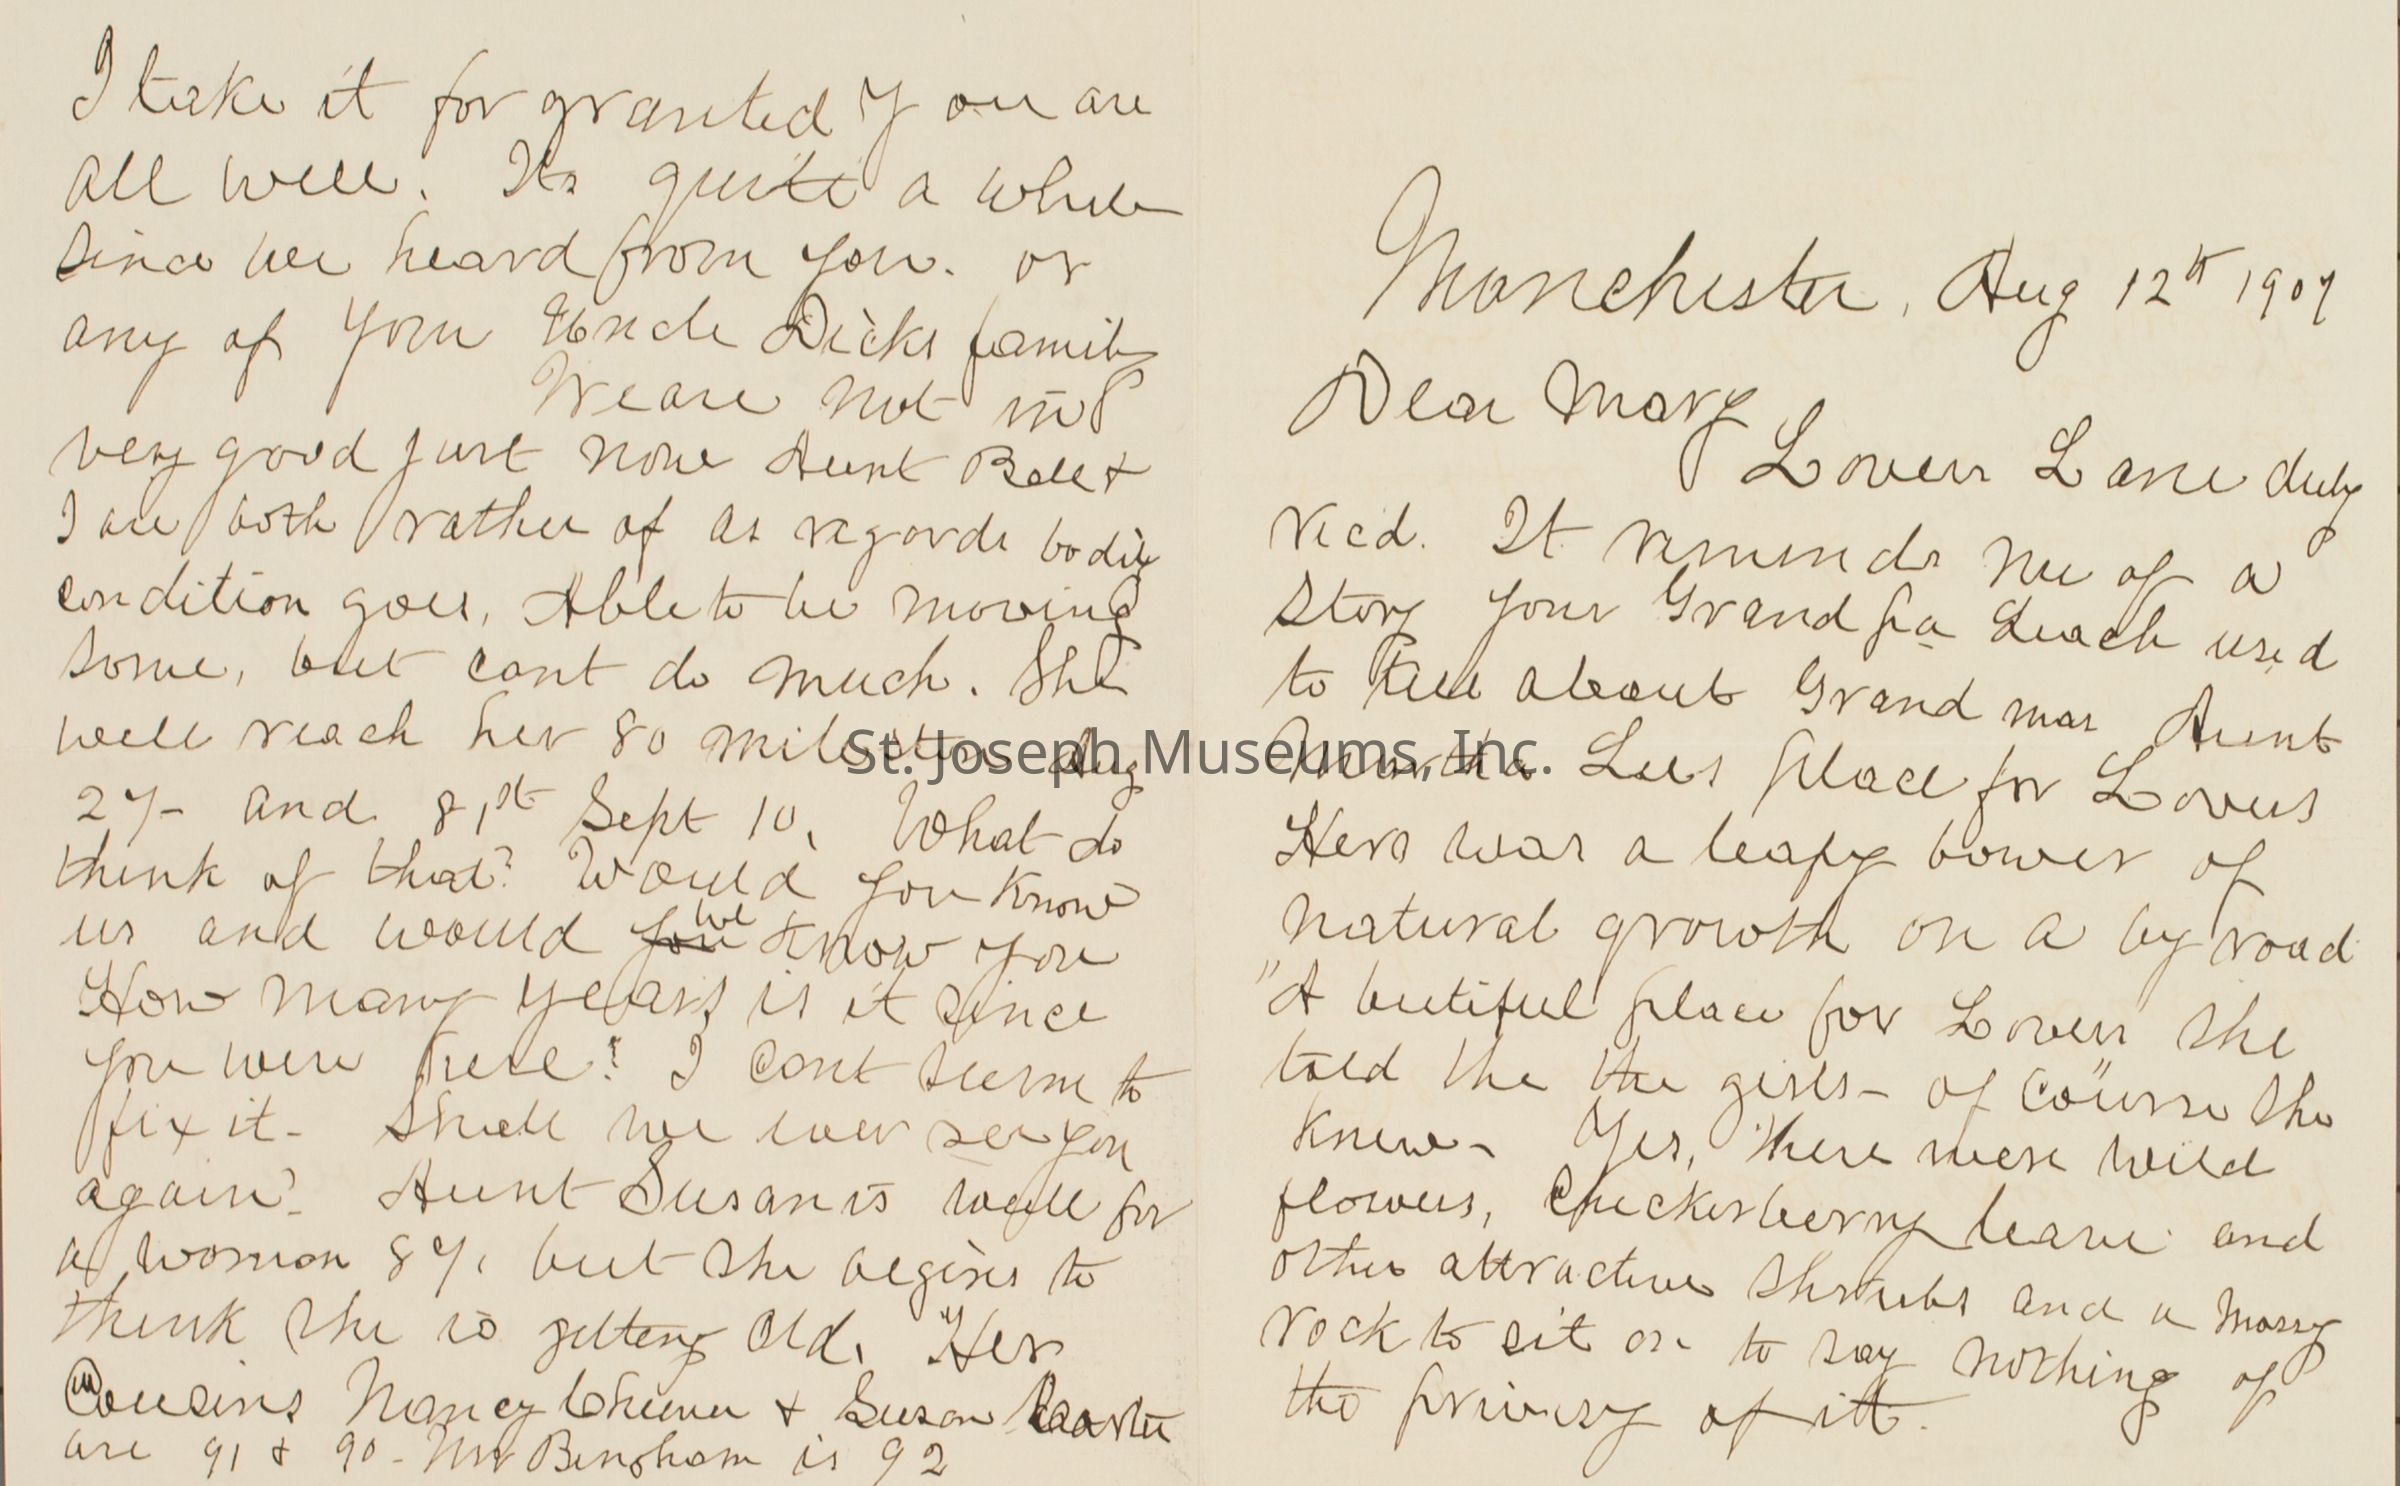 Manchester, Aug 12th 1907
Dear Mary
Lovers Lane duly
rec'd. It reminds me of a
story your Grand pa Leach used
to tell about Grand mar Aunt
Martha Lees place for Lovers
Hers was a leafy bower of
natural growth on a by road
"A butiful place for Lovers she
told the the girls - of course" she
knew - Yes, there were wild
flowers, Checkerberry leave and
other attractive shrubs and a mossy
rock to sit on to say nothing of
the privisy of itt.
I take it for granted you are
all well. Its quite a while
since we heard from you. or
any of your Uncle Dicks family
We are not in
very good just now Aunt Bell &
I are both rather of as regards bodily
condition goes, Able to be moving
some, but cant do much. She
well reach her 80 milestone Aug
27- and 81st Sept 10. What do
think of that? Would you know
us and would you we know you
How many years is it since
you were here? I cant seem to
fix it - Shall we ever see you
again? Aunt Susan is well for
a woman 87, but she begins to
think she is getting old. "Her
Cousins Nancy & Susan
are 91 & 90 - Mr Bingham is 92
St. Joseph Museums, Inc.